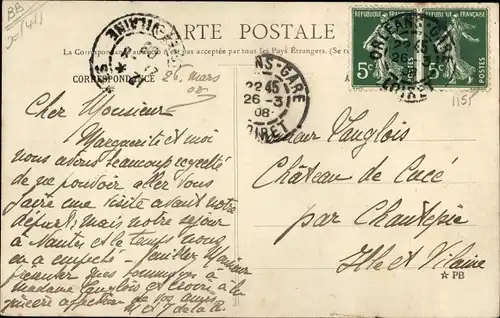 BB
CARTE POSTALE
La Correspondance au recto n'est pas acceptée par tous les Pays Étrangers. (Se r
CORRESPONDANCE
26 mars
08
ORLÉANS-GARE
22 45
26 -3
08
LOIRET
RÉPUBLIQUE FRANÇAISE
5c
POSTES
115
Cher Monsieur
Marguerite et moi
nous avons beaucoup regretté
de ne pouvoir aller vous
faire une visite avant notre
départ; mais notre séjour
à Nantes et le temps nous
en a empêché - Veuillez Monsieur
présenter mes hommages à
madame Langlois et croire à la
sincère affection de vos amis
M et J de la R.
Monsieur Langlois
Château de Cucé
par Chantepie
Ille et Vilaine
PB